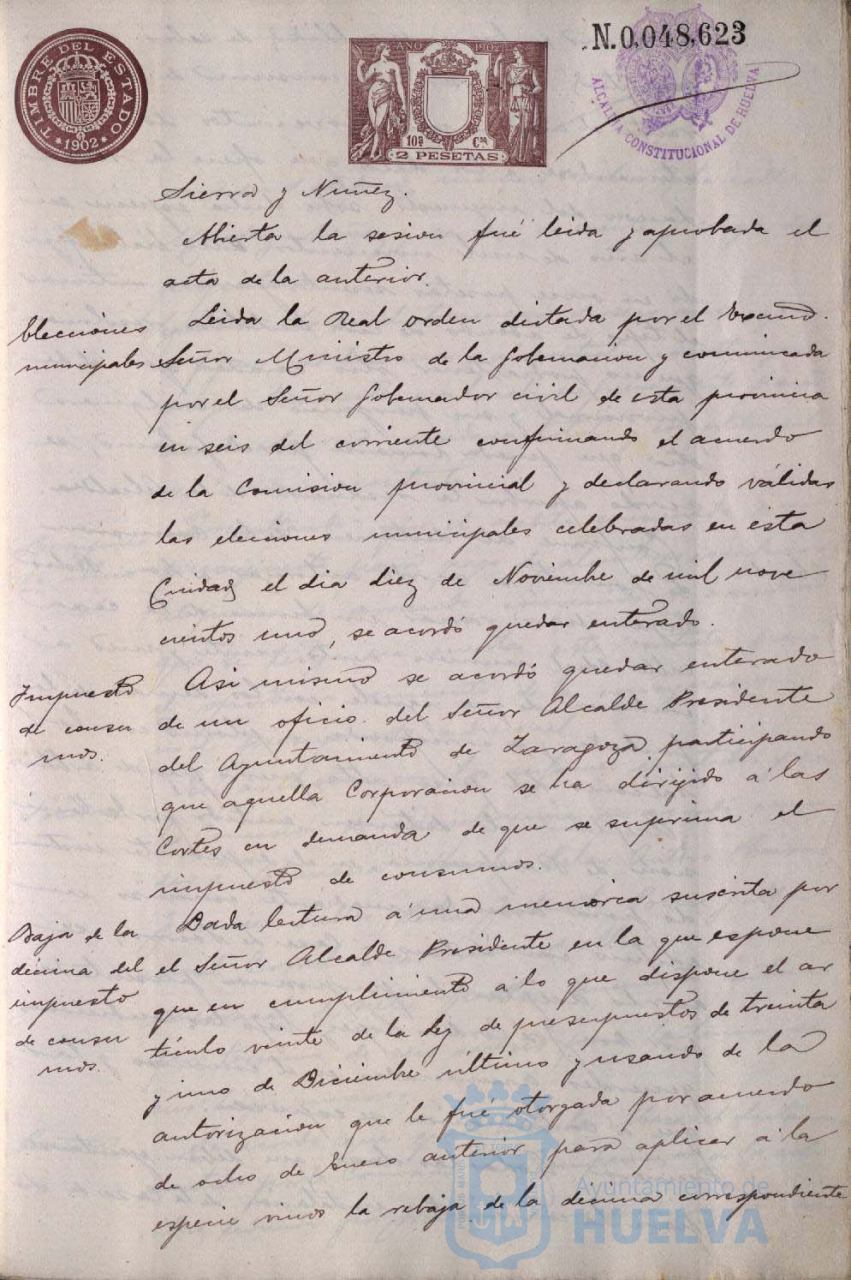 TIMBRE DEL ESTADO
* 1902 *
AÑO 1902
10ª Cª
2 PESETAS
N.0,048,623
ALCALDIA CONSTITUCIONAL DE HUELVA
Sierra y Nuñez.
Abierta la sesion fué leida y aprobada el
acta de la anterior.
Elecciones
municipales
Leida la Real orden dictada por el Excmo.
Señor Ministro de la Gobernacion y comunicada
por el Señor Gobernador civil de esta provincia
en seis del corriente confirmando el acuerdo
de la Comision provincial y declarando válidas
las elecciones municipales celebradas en esta
Ciudad el dia diez de Noviembre de mil nove
cientos uno, se acordó quedar enterado.
Impuesto
de consu
mos.
Asi mismo se acordó quedar enterado
de un oficio del Señor Alcalde Presidente
del Ayuntamiento de Zaragoza participando
que aquella Corporacion se ha dirijido á las
Cortes en demanda de que se suprima el
impuesto de consumos.
Baja de la
décima del
impuesto
de consu
mos.
Dada lectura á una memoria suscrita por
el Señor Alcalde Presidente en la que espone
que en cumplimiento á lo que dispone el ar
tículo veinte de la Ley de presupuestos de treinta
y uno de Diciembre último y usando de la
autorizacion que le fué otorgada por acuerdo
de ocho de Enero anterior para aplicar á la
especie vinos la rebaja de la décima correspondiente
Ayuntamiento de
HUELVA